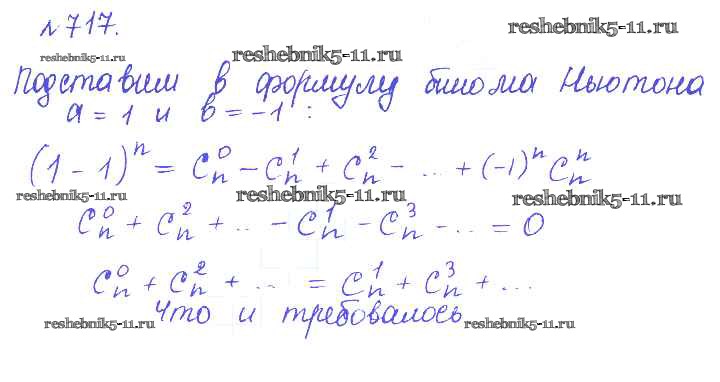 №717.
reshebnik5-11.ru
reshebnik5-11.ru reshebnik5-11.ru
Подставим в формулу бинома Ньютона
a = 1 и b = -1 :
(1 - 1)^n = C_n^0 - C_n^1 + C_n^2 - ... + (-1)^n C_n^n
reshebnik5-11.ru reshebnik5-11.ru reshebnik5-11.ru
C_n^0 + C_n^2 + .. - C_n^1 - C_n^3 - ... = 0
C_n^0 + C_n^2 + ... = C_n^1 + C_n^3 + ...
Что и требовалось
reshebnik5-11.ru reshebnik5-11.ru